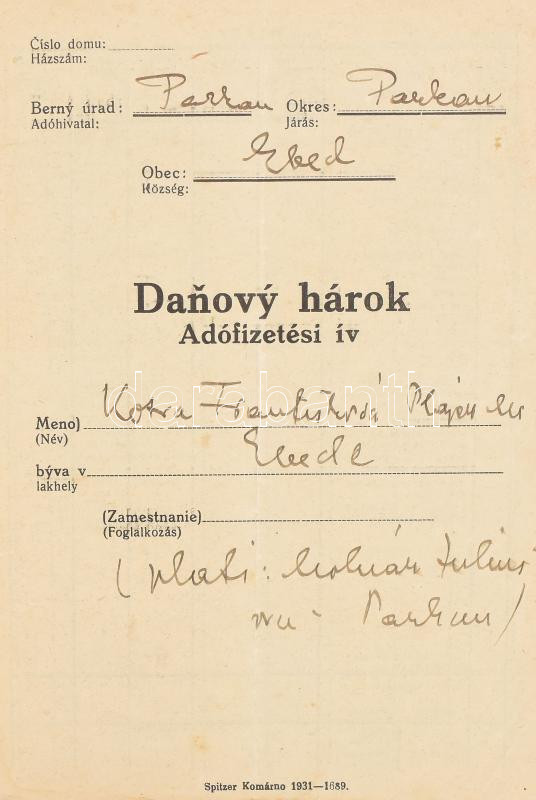 Číslo domu:
Házszám:
Berný úrad: Parkan Okres: Parkan
Adóhivatal: Járás:
Obec: Ebed
Község:
Daňový hárok
Adófizetési ív
darabanth
Meno)
(Név)
Ebede
býva v
lakhely
(Zamestnanie)
(Foglalkozás)
(platí: Molnár Julius
Parkan)
Spitzer Komárno 1931—1689.